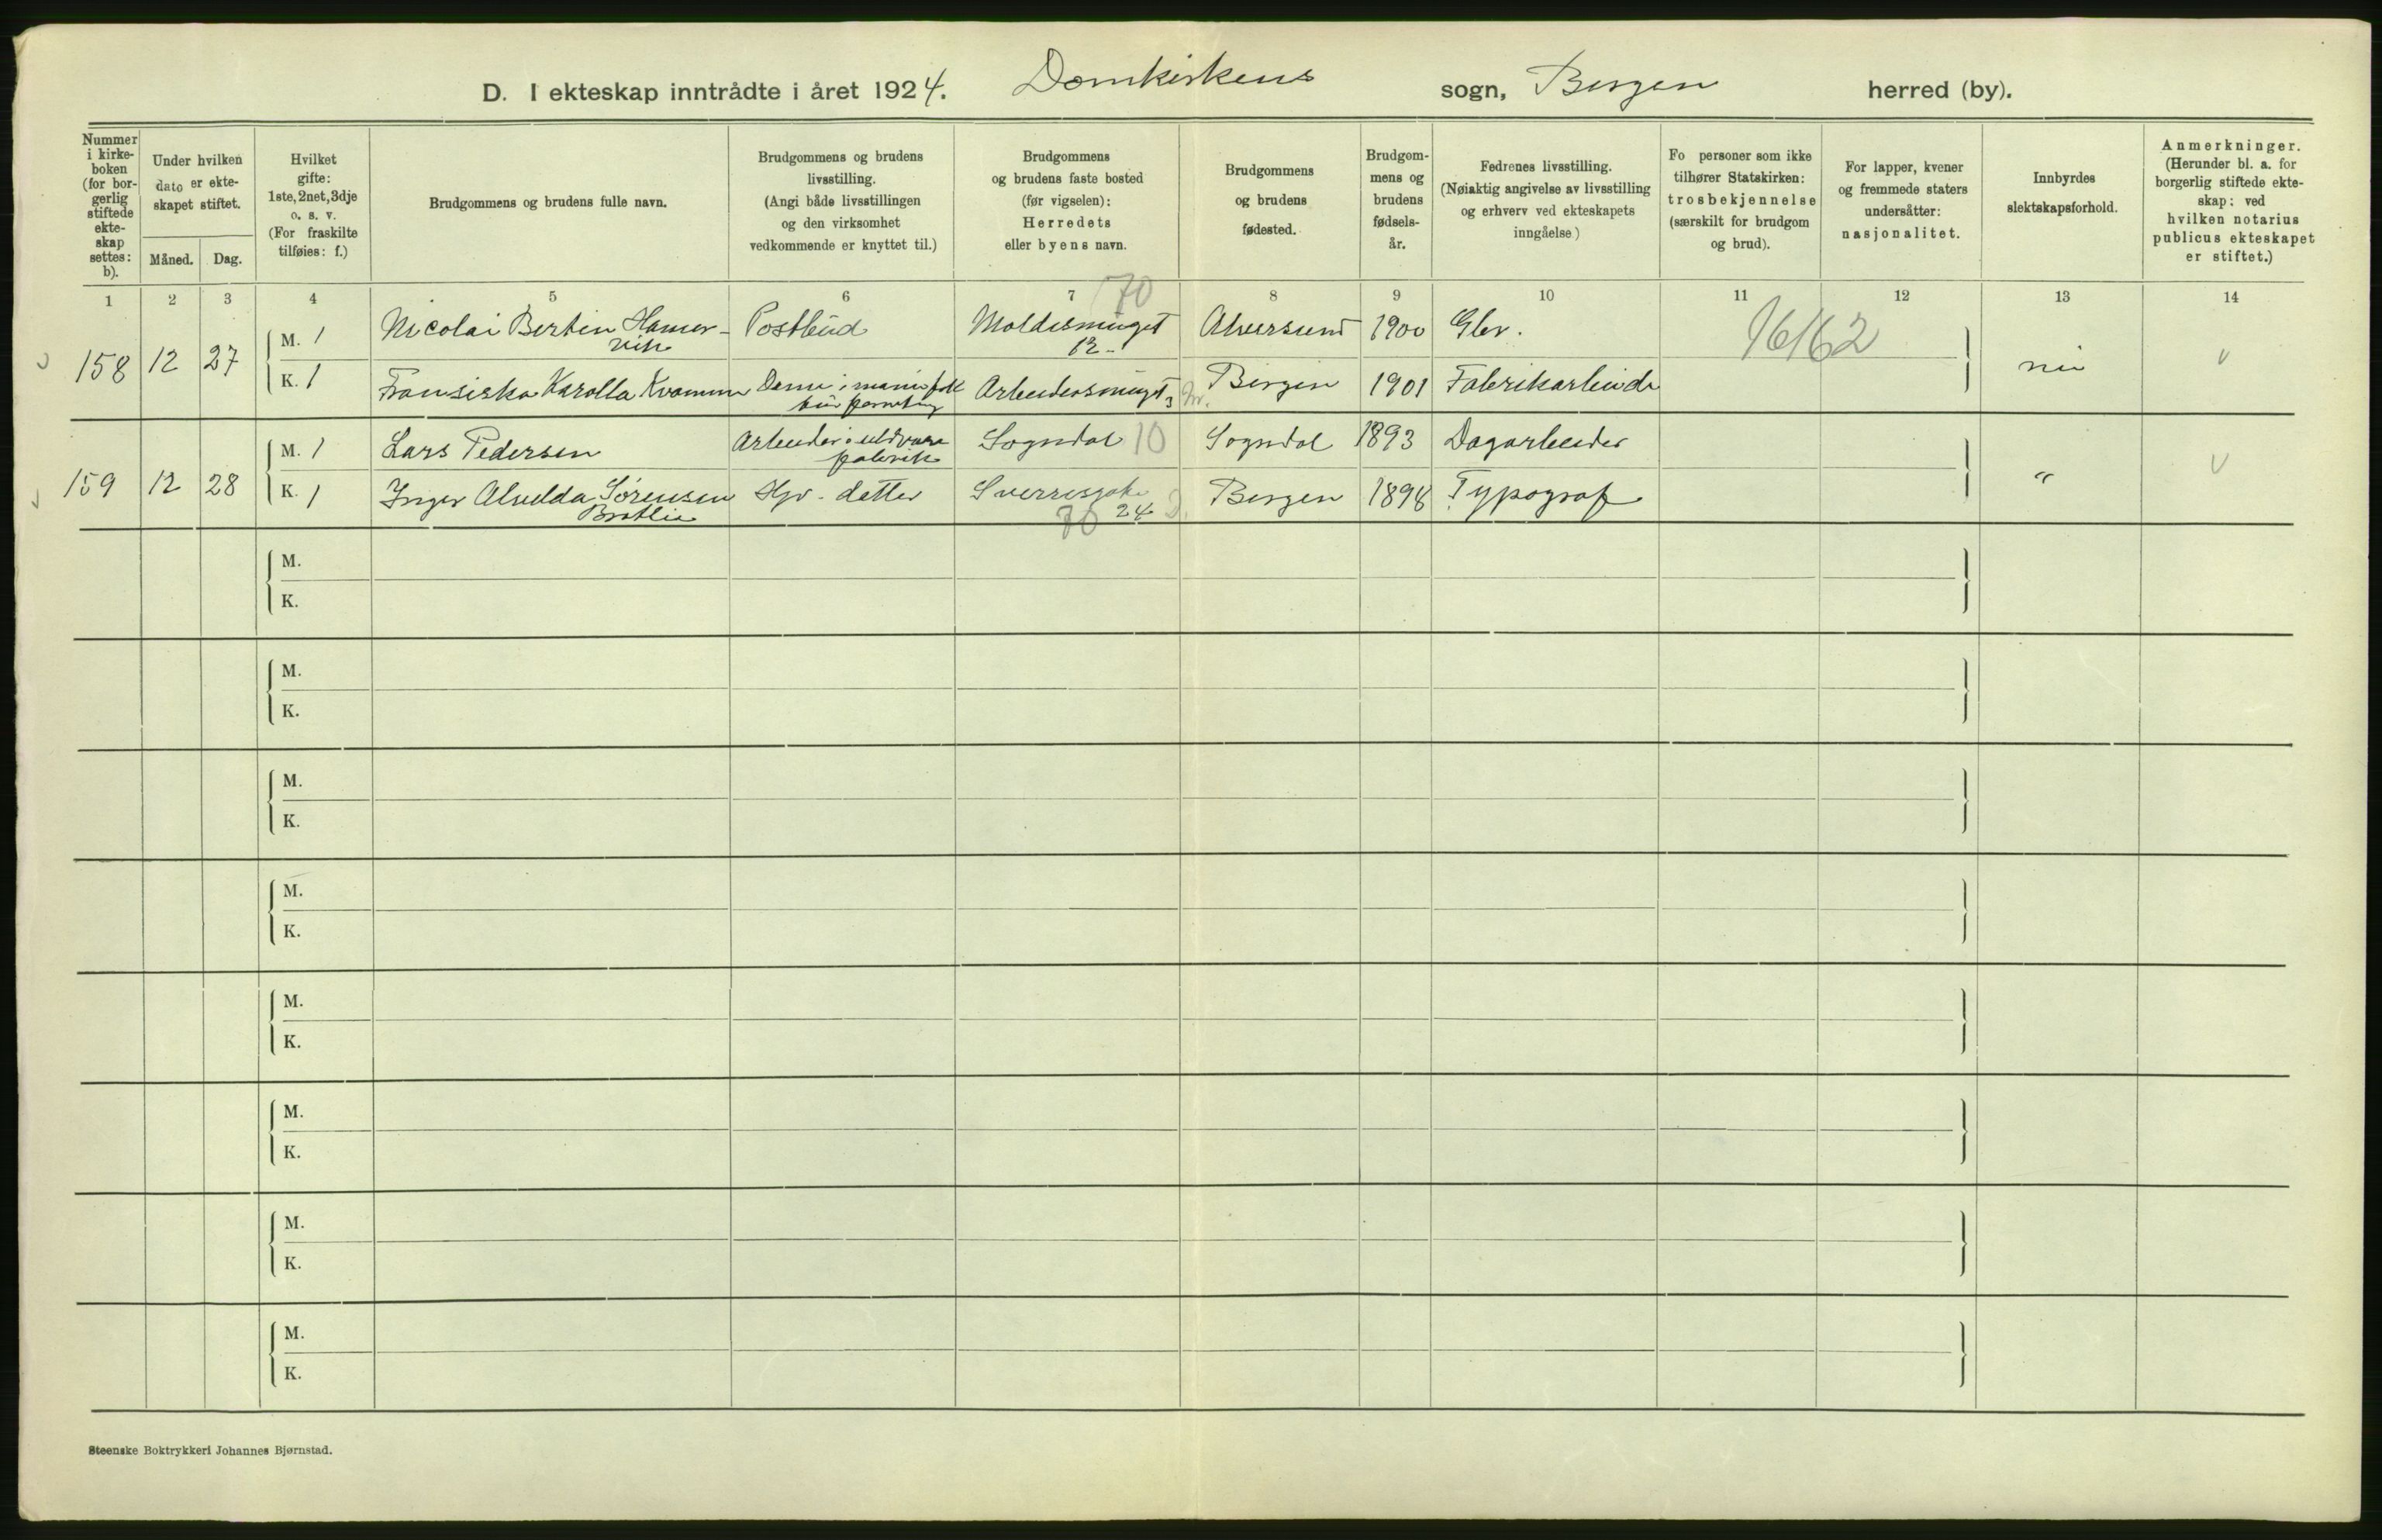 D. I ekteskap inntrådte i året 1924. Domkirkens sogn, Bergen herred (by).
Nummer i kirkeboken (for borgerlig stiftede ekteskap settes: b).
Under hvilken dato er ekteskapet stiftet.
Måned. Dag.
Hvilket gifte: 1ste, 2net, 3dje o. s. v. (For fraskilte tilføies: f.)
Brudgommens og brudens fulle navn.
Brudgommens og brudens livsstilling. (Angi både livsstillingen og den virksomhet vedkommende er knyttet til.)
Brudgommens og brudens faste bosted (før vigselen): Herredets eller byens navn.
Brudgommens og brudens fødested.
Brudgommens og brudens fødselsår.
Fedrenes livsstilling. (Nøiaktig angivelse av livsstilling og erhverv ved ekteskapets inngåelse)
Fo personer som ikke tilhører Statskirken: trosbekjennelse (særskilt for brudgom og brud).
For lapper, kvener og fremmede staters undersåtter: nasjonalitet.
Innbyrdes slektskapsforhold.
Anmerkninger. (Herunder bl. a. for borgerlig stiftede ekteskap: ved hvilken notarius publicus ekteskapet er stiftet.)
1 2 3 4 5 6 7 8 9 10 11 12 13 14
70
158 12 27 M. 1 Nicolai Bertin Hamervik Postbud Moldesmuget 12 Alversund 1900 Gbr. 16162 nei
K. 1 Fransiska Karolla Kvamme Arbeidersmuget 3 Bergen 1901 Fabrikarbeider
159 12 28 M. 1 Lars Pedersen Arbeider i uldvarefabrik Sogndal 10 Sogndal 1893 Dagarbeider "
K. 1 Inger Alvilda Sørensen Bratlie Hjv. datter Sverresgate 24 Bergen 1898 Typograf
70
M.
K.
M.
K.
M.
K.
M.
K.
M.
K.
M.
K.
M.
K.
M.
K.
Steenske Boktrykkeri Johannes Bjørnstad.